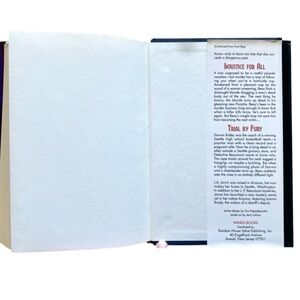 (Continued from front flap)
Anne—only to learn too late that she conceals a dangerous past.
INJUSTICE FOR ALL
It was supposed to be a restful seaside
vacation—but murder has a way of following
you when you're a homicide cop.
Awakened from a pleasant nap by the
sound of a woman screaming, Beau finds a
distraught blonde dragging a man's dead
body out of the sea. The next thing he
knows, the blonde turns up dead in his
gleaming new Porsche. Beau's been in the
murder business long enough to know that
when a killer bites twice, he's sure to kill
again. But Beau's insight may not save him
from becoming the next victim...
TRIAL BY FURY
Darwin Ridley was the coach of a winning
Seattle high school basketball team—a
popular man with a clean record and a
pregnant wife. Now he is lying dead in an
alley outside a Seattle grocery store, and
Detective Beaumont wants to know why.
The rope marks around his neck suggest a
lynching—
and a cheerleader turns up, Beau suddenly
sees the case in an entirely different light.
J.A. JANCE was raised in Arizona, but now
makes her home in Seattle, Washington.
In addition to the J. P. Beaumont mysteries,
Jance has launched a new mystery series
set in her native Arizona, featuring Joanna
Brady, the widow of a sheriff's deputy.
Jacket design by Gus Papadopoulos
Jacket art by Jerry LoFaro
WINGS BOOKS
Distributed by
Random House Value Publishing, Inc.
40 Engelhard Avenue
Avenel, New Jersey 07001